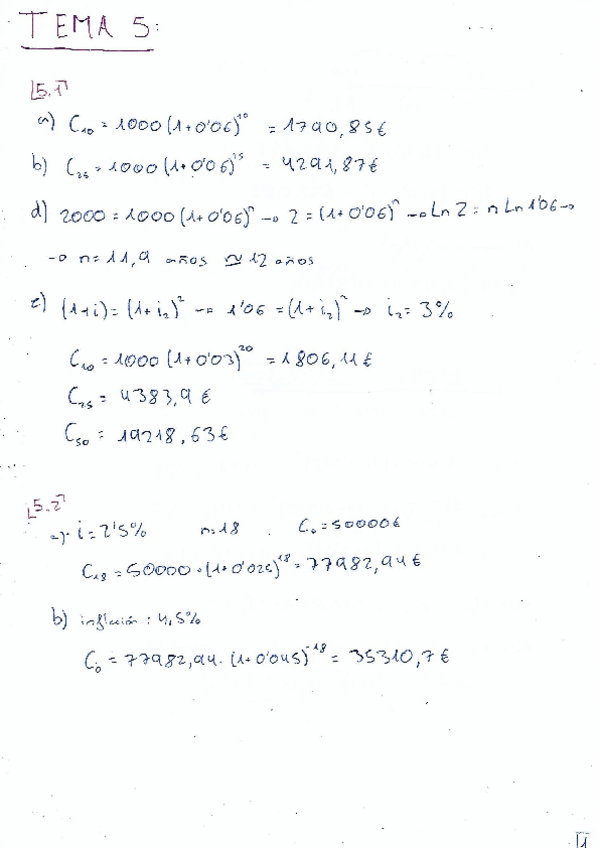 TEMA 5:
5.1
a) C₁₀ = 1000 (1+0'06)¹⁰ = 1790,85€
b) C₂₅ = 1000 (1+0'06)²⁵ = 4291,87€
d) 2000 = 1000 (1+0'06)ⁿ → 2 = (1+0'06)ⁿ → Ln 2 = n Ln 1'06 →
→ n = 11,9 años ≃ 12 años
e) (1+i) = (1+i₂)² → 1'06 = (1+i₂)² → i₂ = 3%
C₁₀ = 1000 (1+0'03)²⁰ = 1806,11€
C₂₅ = 4383,9 €
C₅₀ = 19218,63€
5.2
a) i = 2'5% n=18 C₀ = 50000€
C₁₈ = 50000 · (1+0'025)¹⁸ = 77982,94€
b) inflación: 4,5%
C₀ = 77982,94 · (1+0'045)⁻¹⁸ = 35310,7€
1